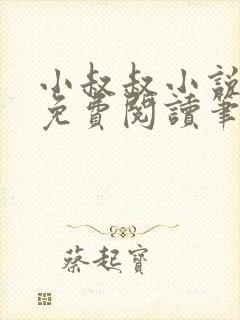 小叔叔小說
免費閱讀筆
蔡起寶